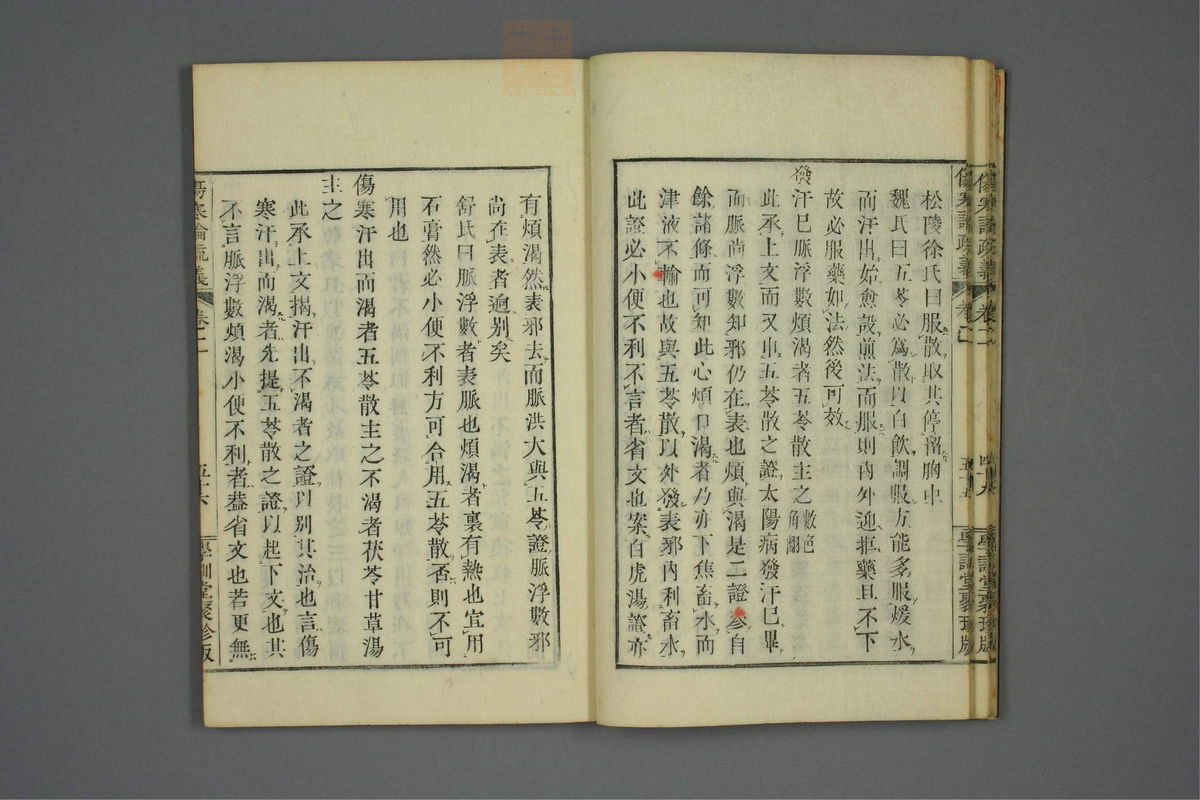 松陵徐氏曰服散取其停畱胸中
魏氏曰五苓必爲散以白飮調服方能多服煖水
而汗出始愈設煎法而服則內外迎拒藥且不下
故必服藥如法然後可效
發汗巳脈浮數煩渴者五苓散主之數色角翻
此承上文而又申五苓散之證太陽病發汗巳畢
而脈尚浮數知邪仍在表也煩與渴是二證參自
餘諸條而可知此心煩口渴者乃亦下焦畜水而
津液不輸也故與五苓散以外發表邪內利畜水
此證必小便不利不言者省文也案白虎湯證亦
有煩渴然表邪去而脈洪大與五苓證脈浮數邪
尚在表者逈別矣
舒氏曰脈浮數者表脈也煩渴者裏有熱也宜用
石膏然必小便不利方可合用五苓散否則不可
用也
傷寒汗出而渴者五苓散主之不渴者茯苓甘草湯
主之
此承上文揭汗出不渴者之證以別其治也言傷
寒汗出而渴者先提五苓散之證以起下文也其
不言脈浮數煩渴小便不利者葢省文也若更無
傷寒論疏義 卷二 五十六 學訓堂聚珍版